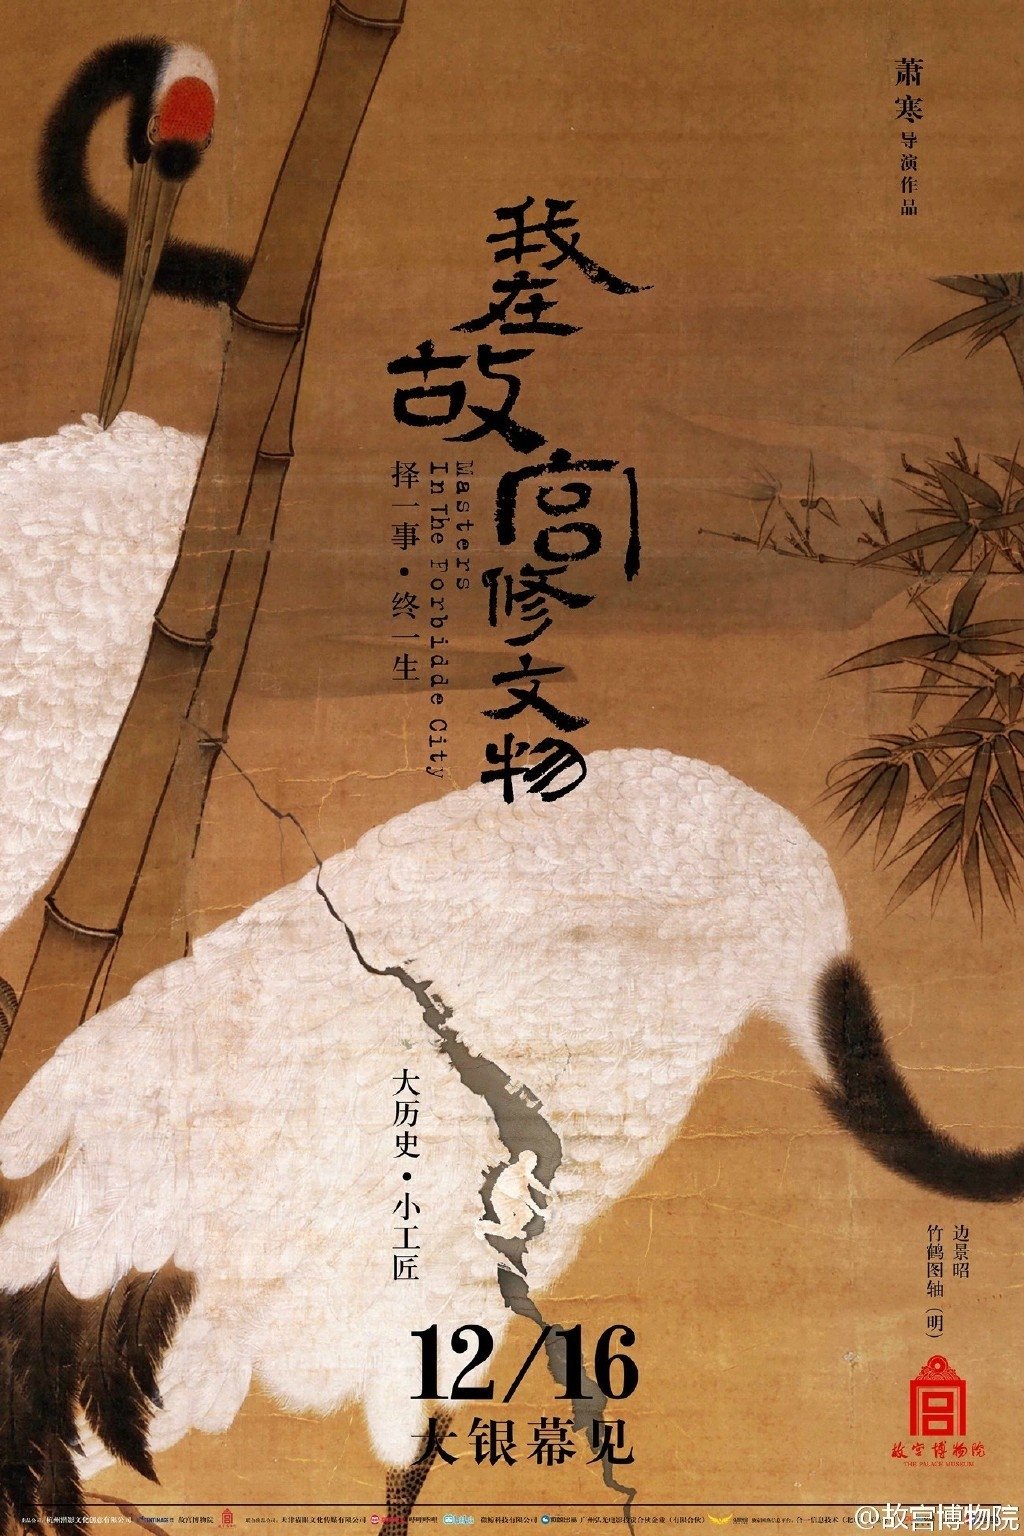 萧寒导演作品
我在故宫修文物
Masters
In The Forbidde City
择一事·终一生
大历史·小工匠
边景昭
竹鹤图轴（明）
12/16
大银幕见
故宫博物院
THE PALACE MUSEUM
@故宫博物院